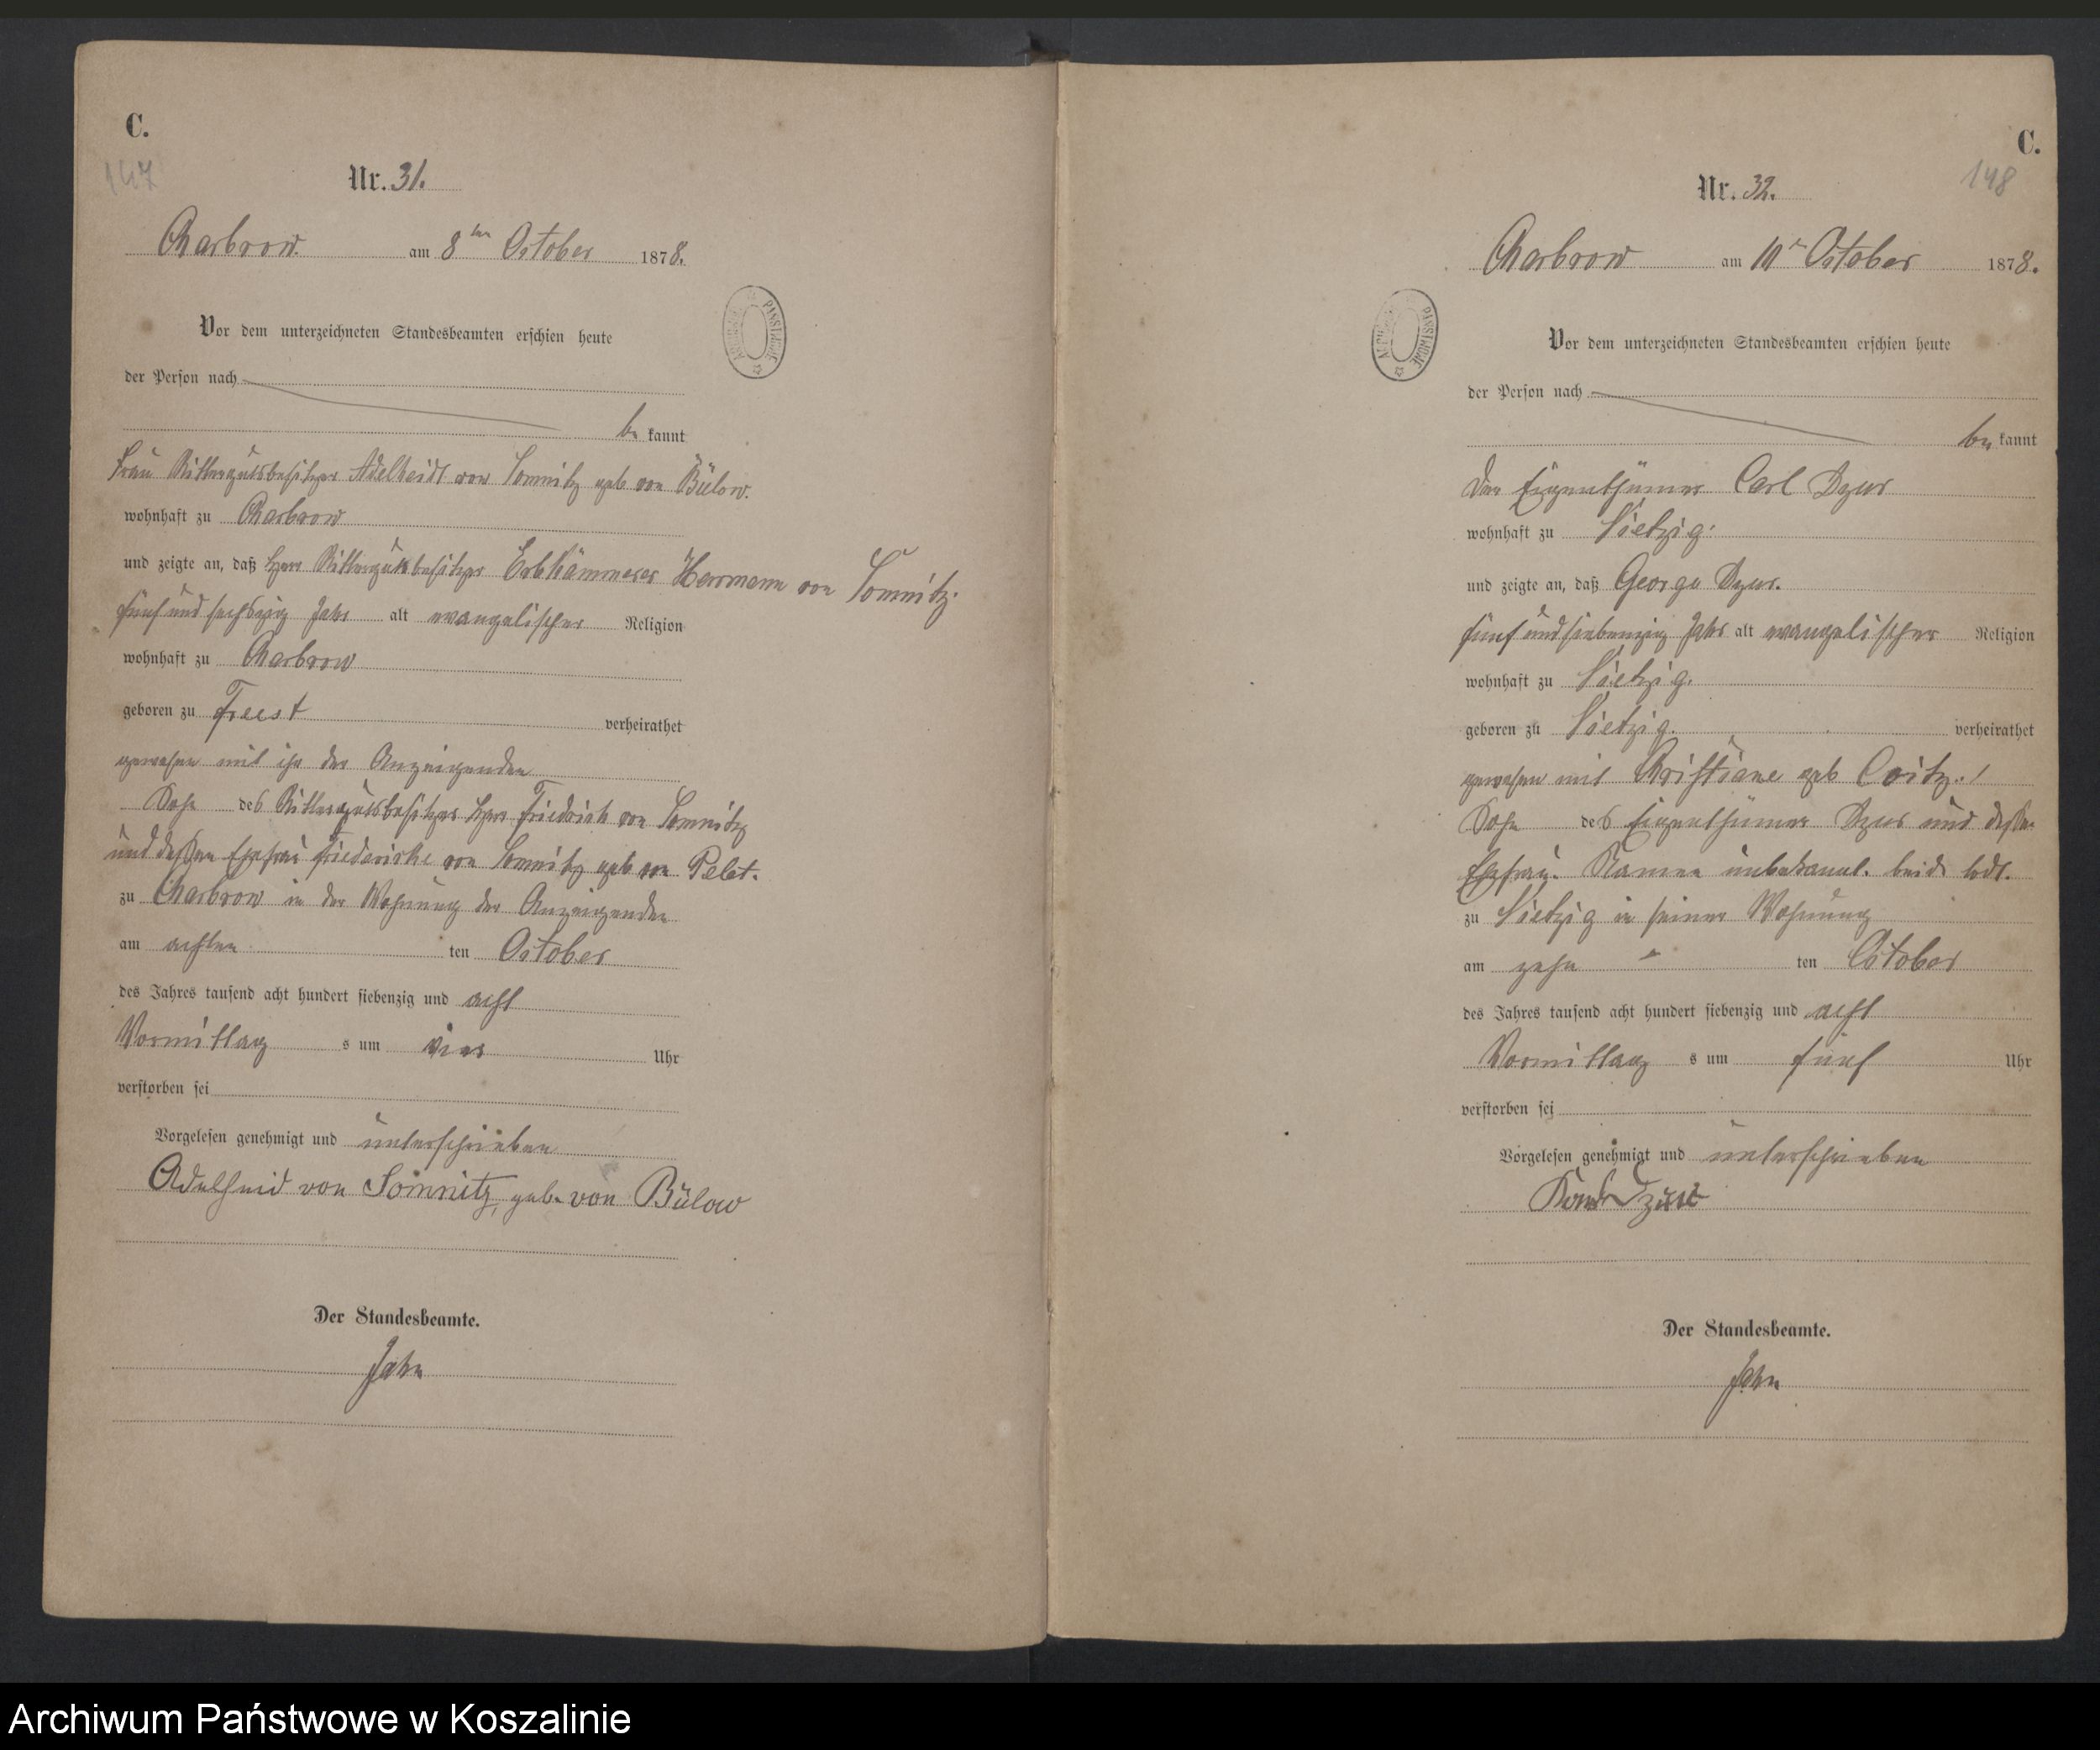 C.
147
Nr. 31.
Charbrow. am 8ten October 1878.
Vor dem unterzeichneten Standesbeamten erschien heute
der Person nach
be kannt
Frau Rittergutsbesitzer Adelheidt von Somnitz geb von Bülow.
wohnhaft zu Charbrow
und zeigte an, daß Herr Rittergutsbesitzer Erbkämmerer Herrmann von Somnitz.
fünf und sechszig Jahr alt evangelischer Religion
wohnhaft zu Charbrow
geboren zu Freest verheirathet
gewesen mit ihr der Anzeigenden
Sohn des Rittergutsbesitzer Herr Friedrich von Somnitz
und dessen Ehefrau Friedericke von Somnitz geb von Pelet.
zu Charbrow in der Wohnung der Anzeigenden
am achten ten October
des Jahres tausend acht hundert siebenzig und acht
Vormittag s um vier Uhr
verstorben sei
Vorgelesen genehmigt und unterschrieben
Adelheid von Somnitz, geb. von Bülow
Der Standesbeamte.
Jahn
C.
148
Nr. 32.
Charbrow am 10 October 1878.
Vor dem unterzeichneten Standesbeamten erschien heute
der Person nach
be kannt
Der Eigenthümer Carl Dzur
wohnhaft zu Vietzig.
und zeigte an, daß George Dzur.
fünf und siebenzig Jahr alt evangelischer Religion
wohnhaft zu Vietzig.
geboren zu Vietzig. verheirathet
gewesen mit Christiane geb
Sohn des Eigenthümer Dzur und dessen
Ehefrau. Namen unbekannt. beide todt.
zu Vietzig in seiner Wohnung
am zehn ten October
des Jahres tausend acht hundert siebenzig und acht
Vormittag s um fünf Uhr
verstorben sei
Vorgelesen genehmigt und unterschrieben
Der Standesbeamte.
Jahn
Archiwum Państwowe w Koszalinie